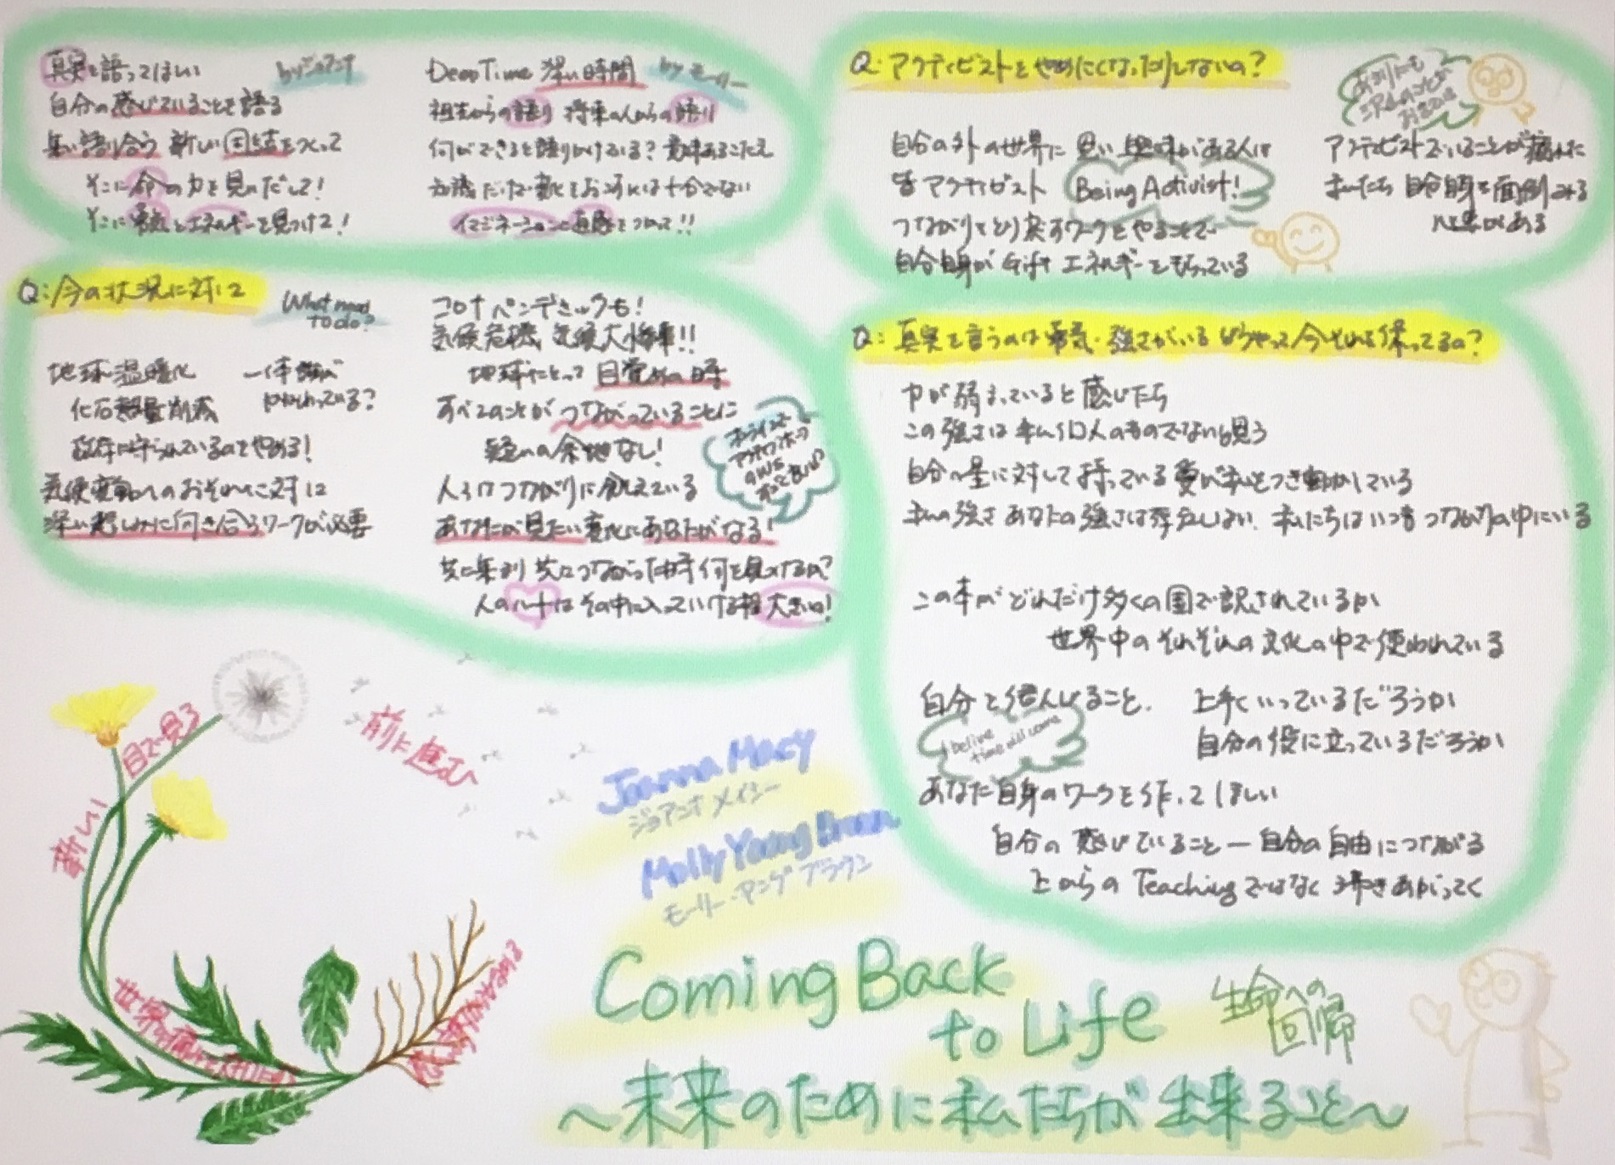 真実を語ってほしい byジョアンナ
自分の感じていることを語る
集い語り合う 新しい団結をつくって
そこに命の力を見いだして!
そこに勇気とエネルギーを見つけて!
Deep Time 深い時間 by モーリー
祖先からの語り 将来の人からの語り
何ができると語りかけている? 意味あるこたえ
だけ変化をおこすには十分でない
イマジネーションと直感をつかって!!
Q:今の状況に対して
What need to do?
地球温暖化 一体誰が
化石燃量削減
政府に守られているのをやめる!
気候変動へのおそれに対して
深い悲しみに向き合うワークが必要
コロナ ペンデミックも!
気候危機 気候大惨事!!
地球にとって 目覚めの時
すべてのことが つながっていることに
疑いの余地なし!
人々はつながりに飢えている
あなたが見たい変化にあなたがなる!
共に集まり 共につながった時 何を見つけるの?
人のハートは その中に入っていける程 大きいの!
Q:アクティビストをやめたくなったりしないの?
自分の外の世界に 思い 興味がある人は
皆 アクティビスト Being Activist!
つながりをとり戻すワークをやることで
自分自身が Gift エネルギーをもらっている
アクティビストでいることが疲れた
私たち 自分自身を面倒みる
必要がある
Q:真実を言うのは勇気・強さがいる どうやって今それを保ってるの?
力が弱まっていると感じたら
この強さは私1人のものでないと思う
自分の星に対して持っている愛が私をつき動かしている
私の強さ あなたの強さは存在しない. 私たちはいつもつながりの中にいる
この本が どれだけ多くの国で訳されているか
世界中の それぞれの文化の中で使われている
自分を信んじること. 上手くいっているだろうか
自分の役に立っているだろうか
I belive time will come
あなた自身のワークを作ってほしい
自分の感じていること — 自分の自由につながる
上からの Teachingではなく 沸きあがってく
新しい
目で見る
前に進む
Joanna Macy
ジョアンナ メイシー
Molly Young Brown
モーリー・ヤング ブラウン
Coming Back
to Life 生命への回帰
~未来のために私たちが出来ること~